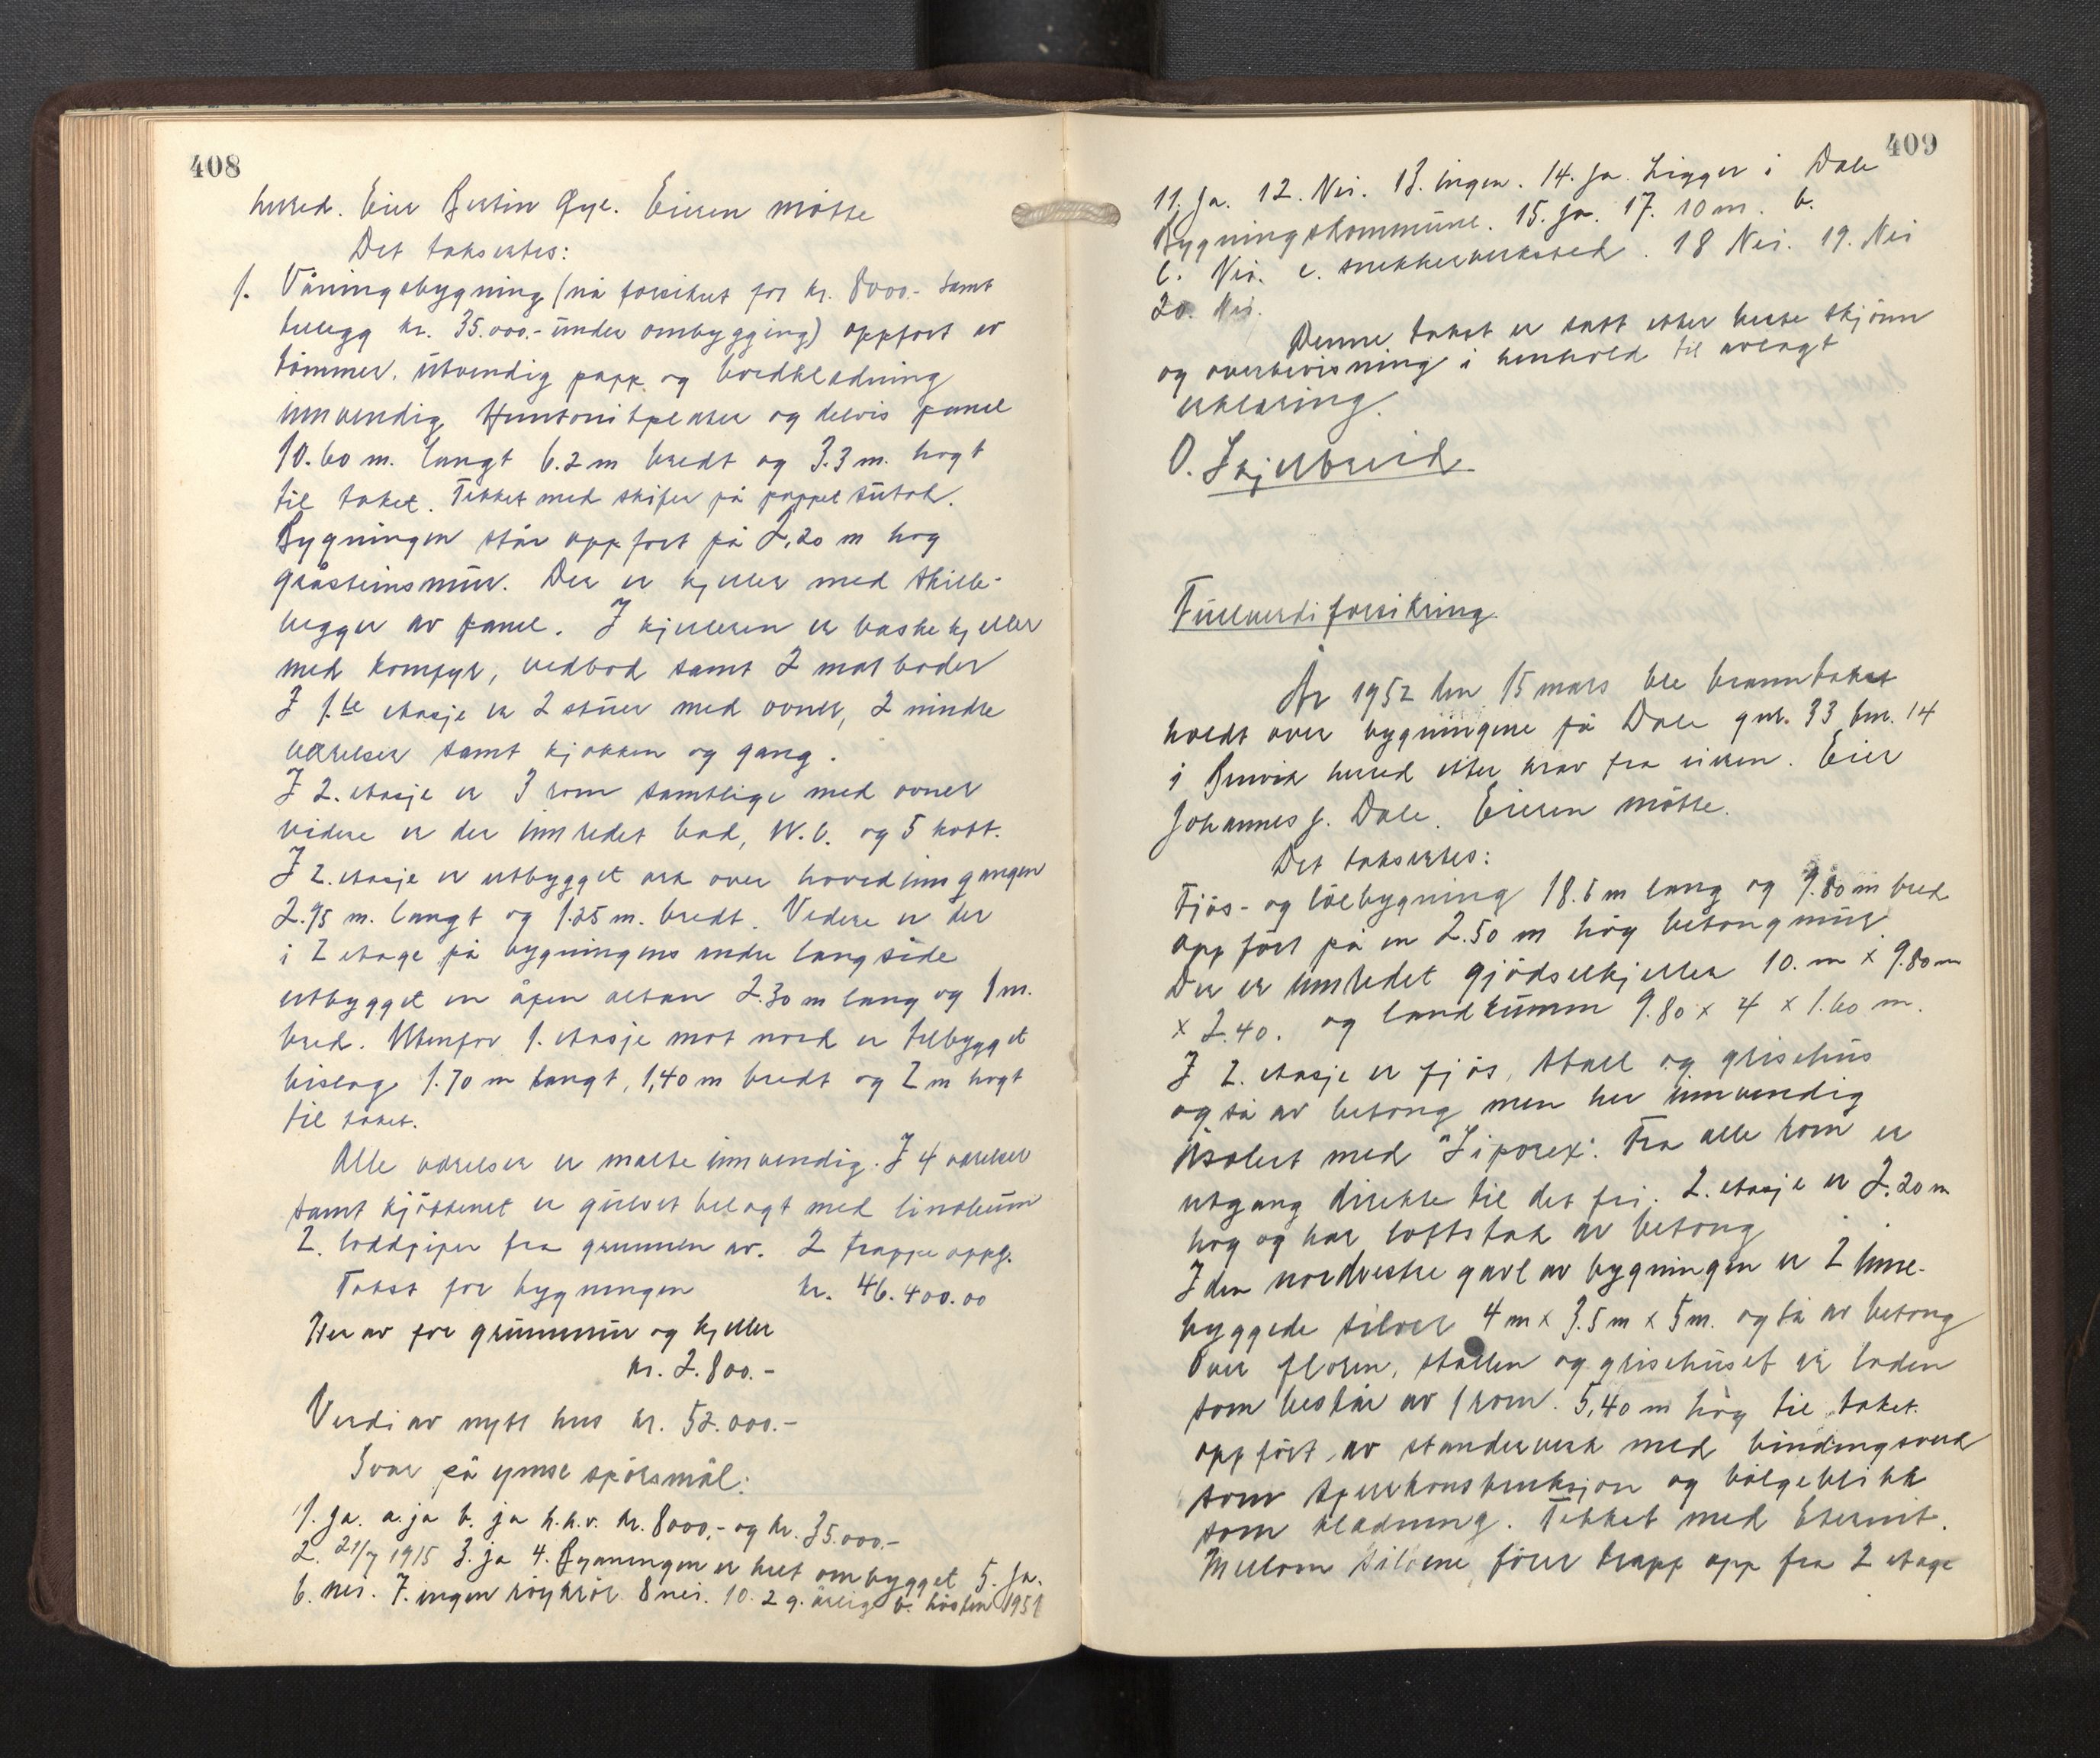 408
herred. Eier Bertin Øye. Eieren møtte
Det takseres:
1. Våningsbygning (nå forsikret for kr. 8000.- samt
tillegg kr. 35.000.- under ombygging) oppført av
tømmer. utvendig papp og bordkledning
innvendig Huntonitplater og delvis panel
10.60 m. langt 6.2 m bredt og 3.3 m. høgt
til taket. Tekket med skifer på pappet sutak.
Bygningen står oppført på 2.20 m høg
gråsteinsmur. Der er kjeller med skille-
vegger av panel. I kjelleren er vaskekjeller
med komfyr, vedbod samt 2 matboder
I 1.ste etasje er 2 stuer med ovner, 2 mindre
værelser samt kjøkken og gang.
I 2. etasje er 3 rom samtlige med ovner
videre er der innredet bad, W.C. og 5 kott.
I 2. etasje er utbygget ark over hovedinngangen
2.95 m. langt og 1.25 m. bredt. Videre er der
i 2 etage på bygningens andre langside
utbygget en åpen altan 2.30 m lang og 1 m.
bred. Utenfor 1. etasje mot nord er tilbygget
bislag 1.70 m langt, 1,40 m bredt og 2 m høgt
til taket.
Alle værelser er malte innvendig. I 4 værelser
samt kjøkkenet er gulvet belagt med linoleum
2. loddpiper fra grunnen av. 2 trappe oppg.
Takst for bygningen kr. 46.400.00
Her av for grunnmur og kjeller
kr. 2.800.-
Verdi av nytt hus kr. 52.000.-
Svar på ymse spørsmål:
1. Ja. a. ja b. ja h.h.v. kr. 8000,- og kr. 35.000.-
2. 21/7 1915 3. ja 4. Bygningen er helt ombygget 5. Ja.
6. nei. 7. ingen røykrør 8 nei. 10. 2 g. årlig b. høsten 1951
409
11. Ja. 12. Nei. 13. ingen. 14. Ja. Ligger i Dale
Bygningskommune. 15. Ja. 17. 10 m. b.
c. Nei. e. snekkerverksted. 18 Nei. 19. Nei
20. Nei.
Denne takst er satt etter beste skjønn
og overbevisning i henhold til avlagt
erklæring.
O. Skjelbreid
Fullverdiforsikring
År 1952 den 15 mars ble branntakst
holdt over bygningene på Dale gnr. 33 bnr. 14
i Bruvik herred etter krav fra eieren. Eier
Johannes J. Dale. Eieren møtte.
Det takseres:
Fjøs- og løebygning 18.6 m lang og 9.80 m bred
oppført på en 2.50 m høg betongmur.
Der er innredet gjødselkjeller 10. m x 9.80 m
x 2.40. og landkumm 9.80 x 4 x 1.60 m.
I 2. etasje er fjøs, stall og grisehus
også av betong men her innvendig
isolert med "Siporex". Fra alle rom er
utgang direkte til det fri. 2. etasje er 2.20 m
høg og har loftstak av betong
I den nordvestre gavl av bygningen er 2 inne-
byggede siloer 4 m x 3.5 m x 5 m. også av betong
Over floren, stallen og grisehuset er laden
som består av 1 rom. 5,40 m høg til taket.
oppført av standerverk med bindingsverk
som sperrkonstruksjon og bølgeblikk
som kledning. Tekket med Eternit.
Mellom siloene fører trapp opp fra 2 etage